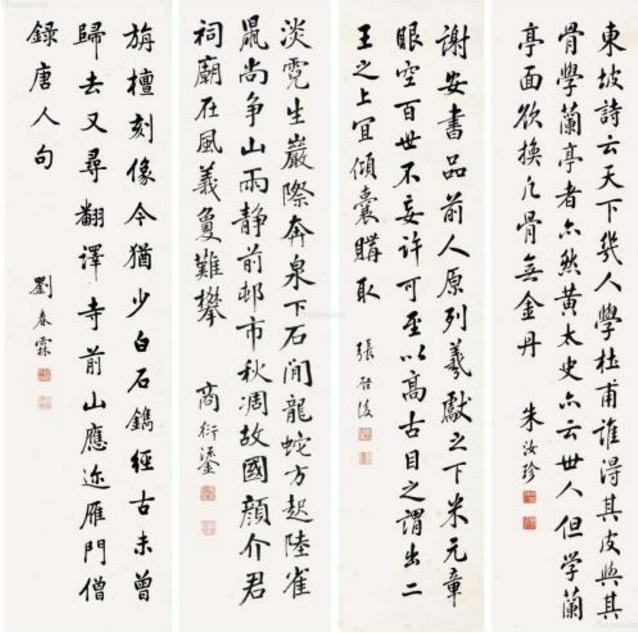 東坡詩云天下幾人學杜甫誰得其皮與其
骨學蘭亭者亦然黃太史亦云世人但学蘭
亭面欲換凡骨無金丹
朱汝珍
謝安書品前人原列羲獻之下米元章
眼空百世不妄許可至以高古目之謂出二
王之上宜傾囊購取
張啓後
淡霓生巖際奔泉下石間龍蛇方起陸雀
鼠尚争山雨靜前邨市秋凋故國顏介君
祠廟在風義敻難攀
商衍鎏
旃檀刻像今猶少白石鐫經古未曾
歸去又尋翻譯寺前山應迩雁門僧
録唐人句
劉春霖